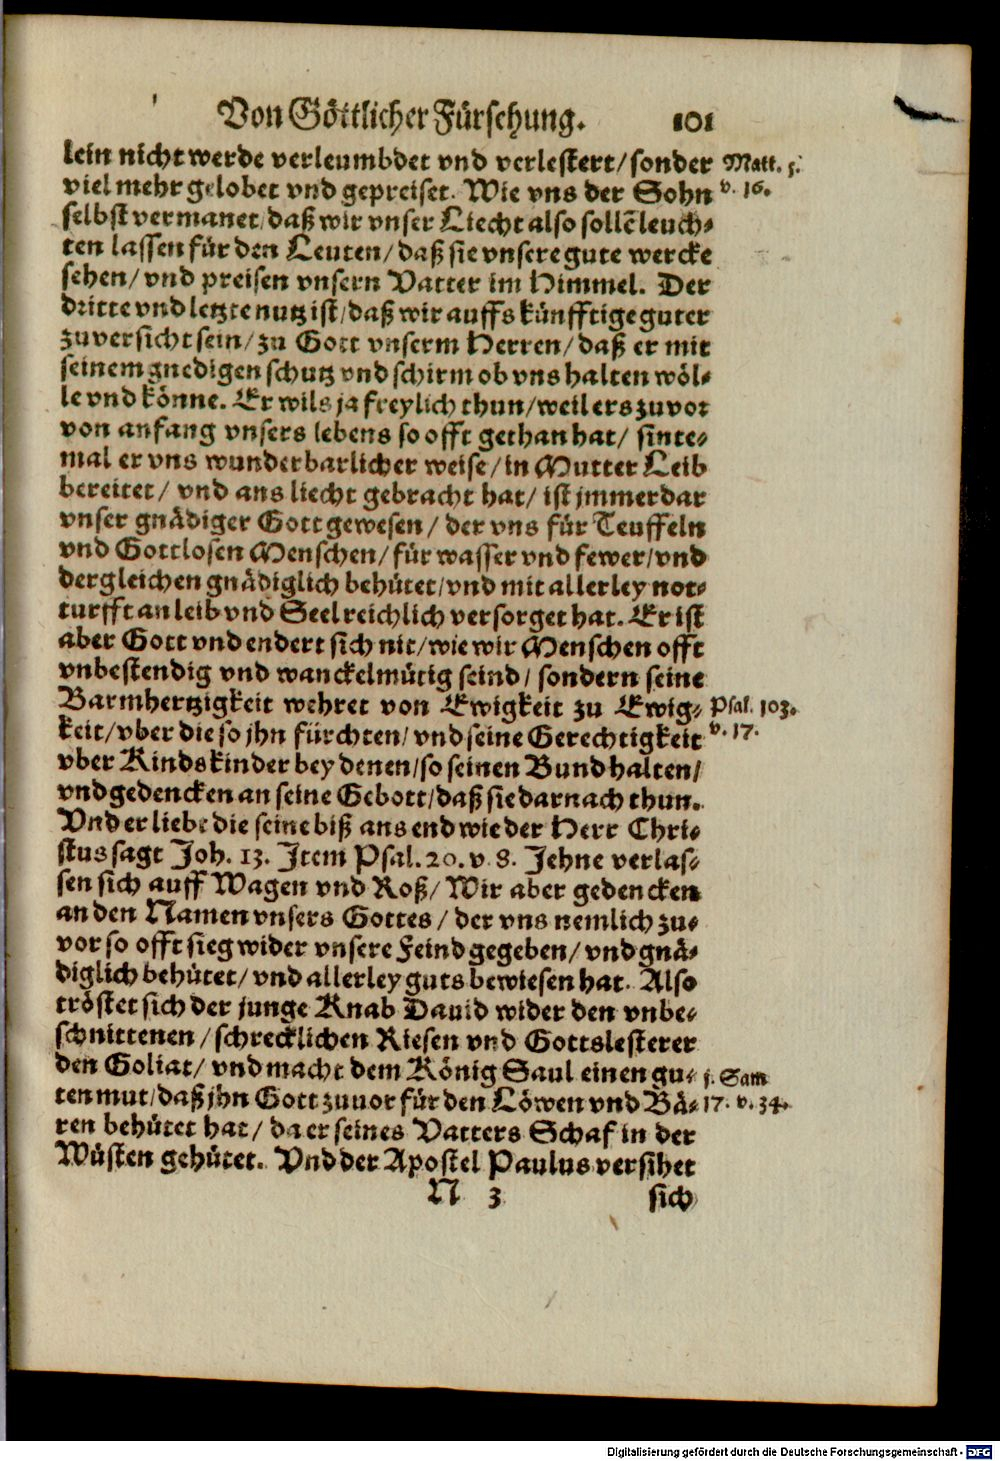 Von Göttlicher Fürsehung. 101
lein nicht werde verleumbdet vnd verlestert/ sonder Matt. 5.
viel mehr gelobet vnd gepreiset. Wie vns der Sohn v. 16.
selbst vermanet/ daß wir vnser Liecht also sollē leuch-
ten lassen für den Leuten/ daß sie vnsere gute wercke
sehen/ vnd preisen vnsern Vatter im Himmel. Der
dritte vnd letzte nutz ist/ daß wir auffs künfftige guter
zuversicht sein/ zu Gott vnserm Herren/ daß er mit
seinem gnedigen schutz vnd schirm ob vns halten wöl-
le vnd könne. Er wils ja freylich thun/ weil ers zuvor
von anfang vnsers lebens so offt gethan hat/ sinte-
mal er vns wunderbarlicher weise/ in Mutter Leib
bereitet/ vnd ans liecht gebracht hat/ ist jmmerdar
vnser gnädiger Gott gewesen/ der vns für Teuffeln
vnd Gottlosen Menschen/ für wasser vnd fewer/ vnd
dergleichen gnädiglich behütet/ vnd mit allerley not-
turfft an leib vnd Seel reichlich versorget hat. Er ist
aber Gott vnd endert sich nit/ wie wir Menschen offt
vnbestendig vnd wanckelmütig seind/ sondern seine
Barmhertzigkeit wehret von Ewigkeit zu Ewig- Psal. 103.
keit/ vber die so jhn fürchten/ vnd seine Gerechtigkeit v. 17.
vber Kindskinder bey denen/ so seinen Bund halten/
vnd gedencken an seine Gebott/ daß sie darnach thun.
Vnd er liebt die seine biß ans end wie der Herr Chri-
stus sagt Joh. 13. Item Psal. 20. v. 8. Jehne verlas-
sen sich auff Wagen vnd Roß/ Wir aber gedencken
an den Namen vnsers Gottes/ der vns nemlich zu-
vor so offt sieg wider vnsere Feind gegeben/ vnd gnä-
diglich behütet/ vnd allerley guts bewiesen hat. Also
tröstet sich der junge Knab Dauid wider den vnbe-
schnittenen/ schrecklichen Riesen vnd Gottslesterer
den Goliat/ vnd macht dem König Saul einen gu- j. Sam
ten mut/ daß jhn Gott zuuor für den Löwen vnd Bä- 17. v. 34.
ren behütet hat/ da er seines Vatters Schaf in der
Wüsten gehütet. Vnd der Apostel Paulus versihet
N 3 sich
Digitalisierung gefördert durch die Deutsche Forschungsgemeinschaft - DFG